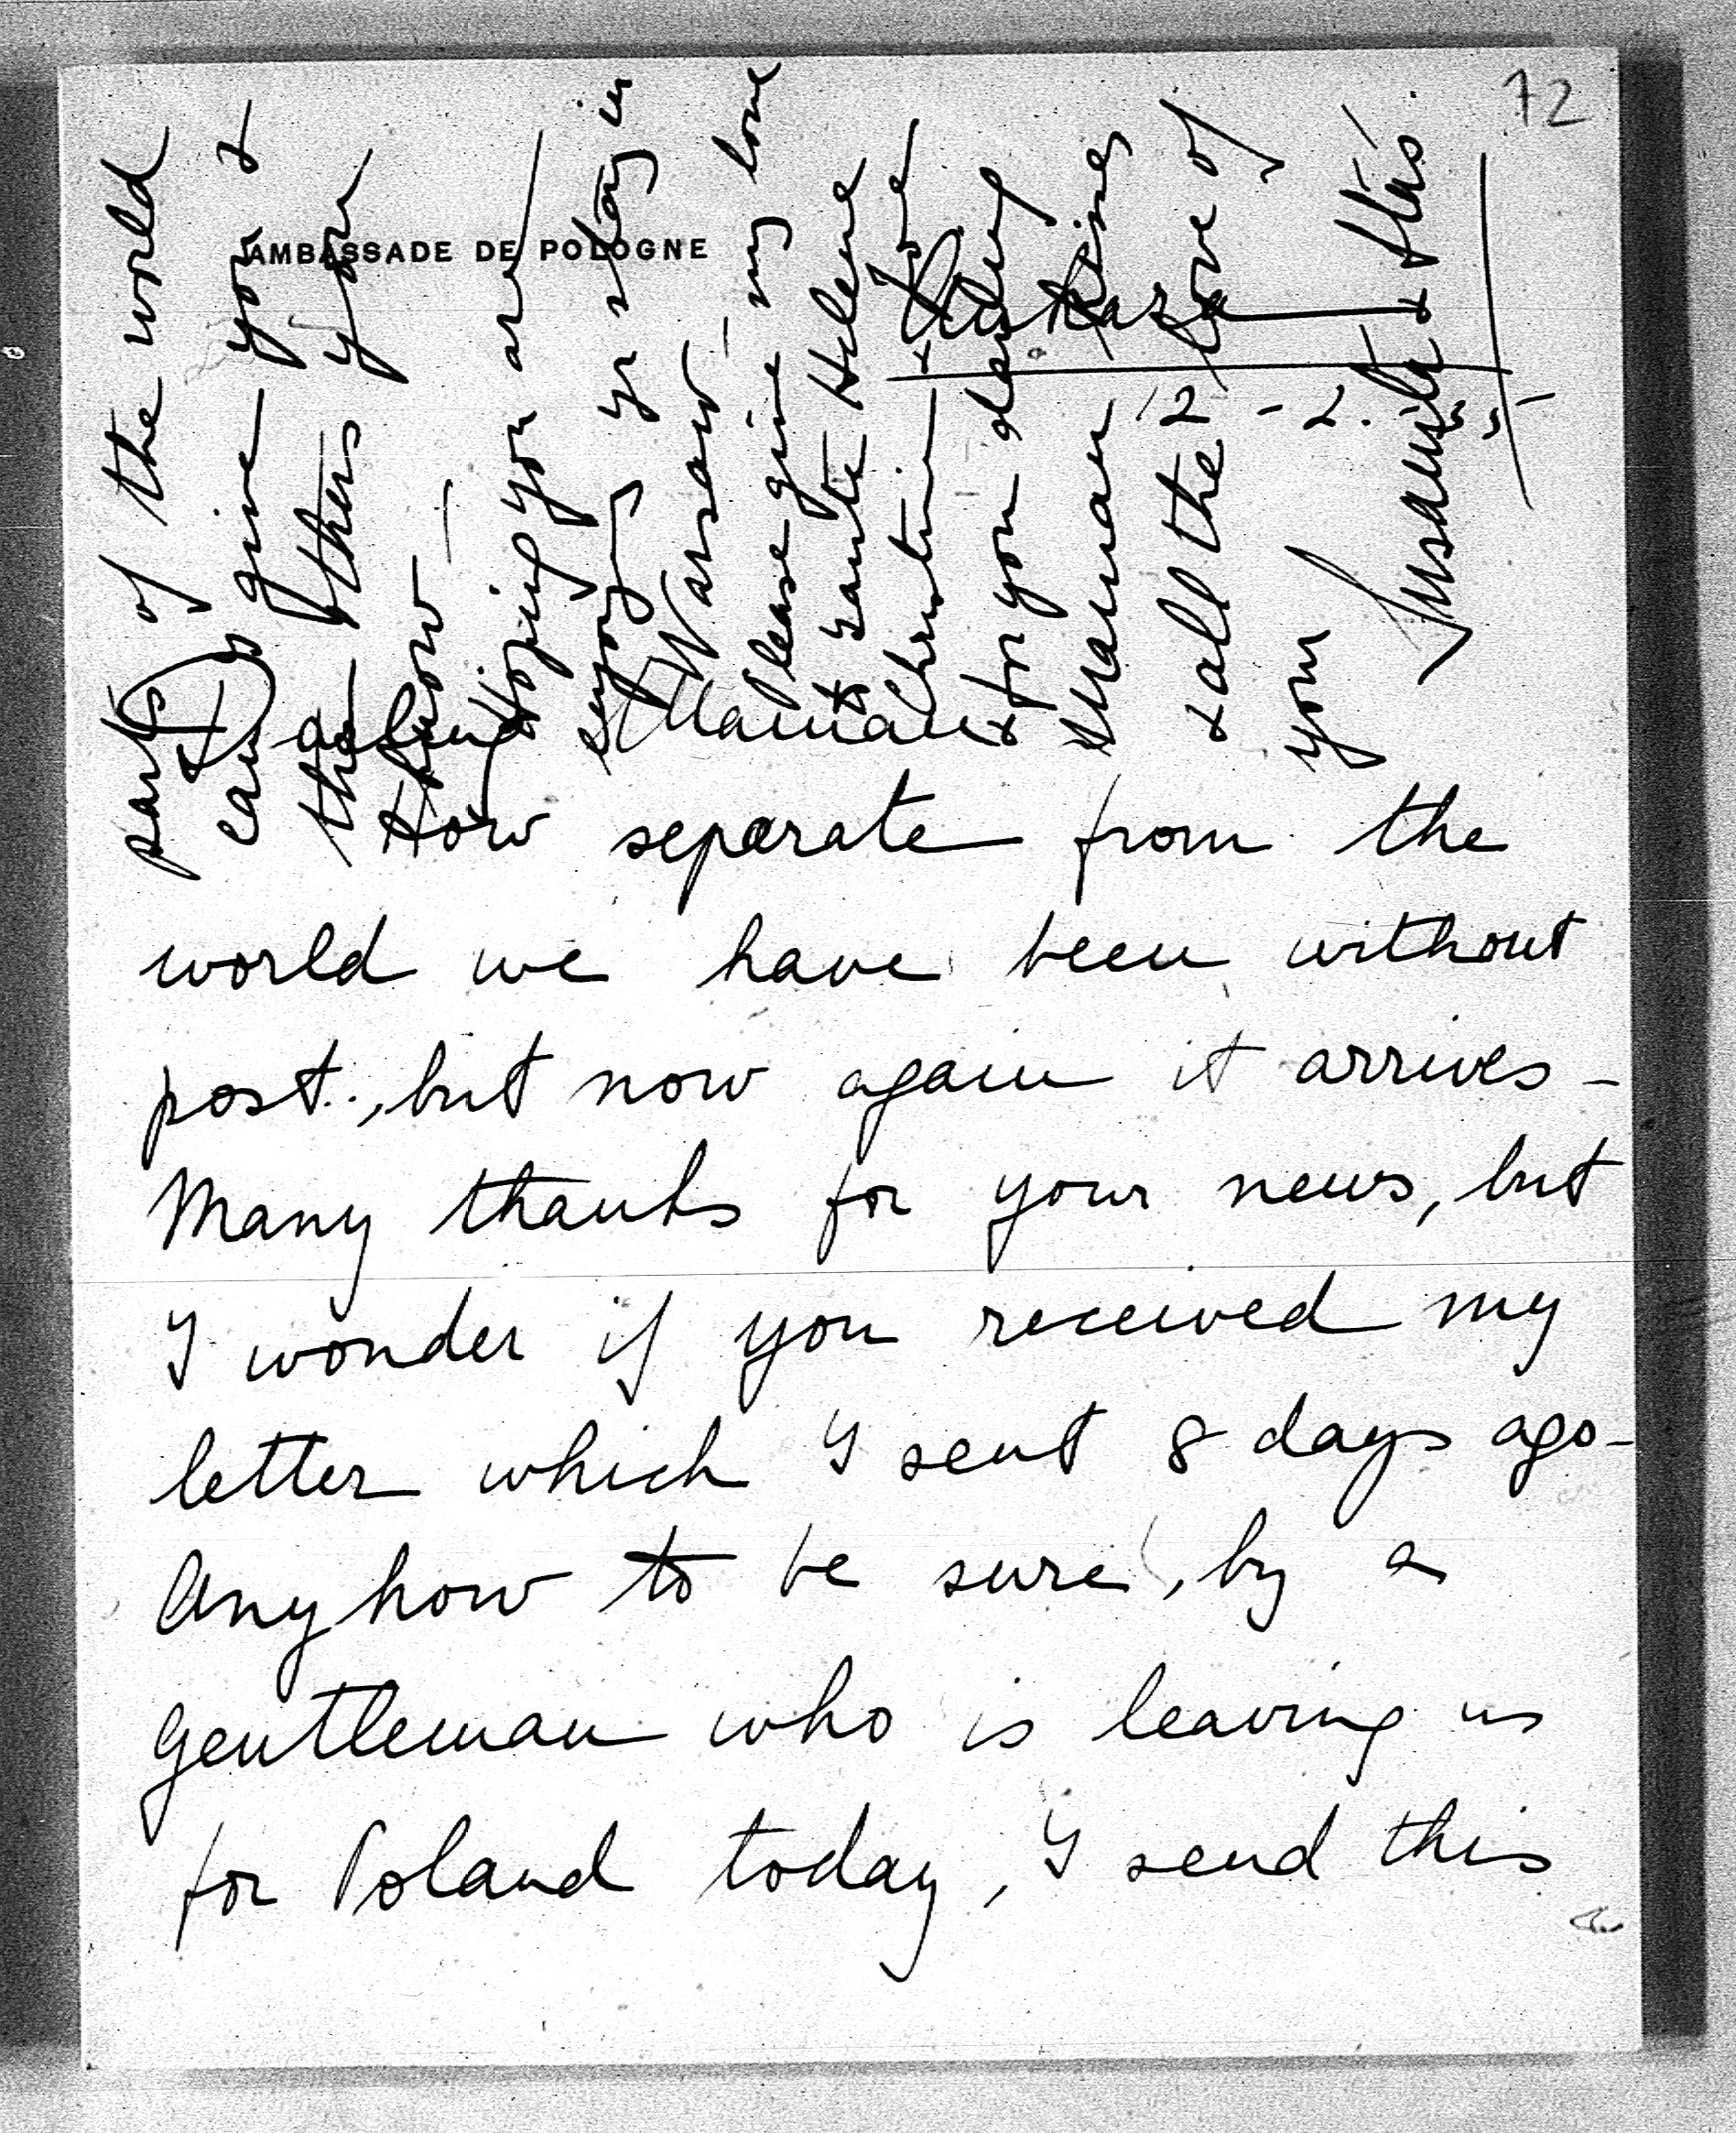 72
AMBASSADE DE POLOGNE
Ankara
12-2.
Darling Maman
How separate from the
world we have been without
post., but now again it arrives -
Many thanks for your news, but
I wonder if you received my
letter which I sent 8 days ago -
Anyhow to be sure, by a
Gentleman who is leaving us
for Poland today, I send this
parts of the world
can give you &
the others your
Hoping you are
enjoying yr stay in
Warsaw -
Please give my love
to Tante Helene
& Christine &
for you darling
Maman kisses
& all the love of
your
& Stas